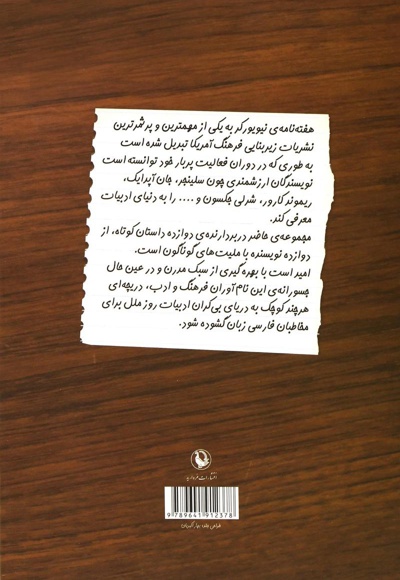 هفته‌نامه‌ی نیویورکر به یکی از مهمترین و پرثمرترین
نشریات زیربنایی فرهنگ آمریکا تبدیل شده است
به طوری که در دوران فعالیت پربار خود توانسته است
نویسندگان ارزشمندی چون سلینجر، جان آپدایک،
ریموند کارور، شرلی جکسون و .... را به دنیای ادبیات
معرفی کند.
مجموعه‌ی حاضر دربردارنده‌ی دوازده داستان کوتاه، از
دوازده نویسنده با ملیت‌های گوناگون است.
امید است با بهره گیری از سبک مدرن و در عین حال
جسورانه‌ی این نام آوران فرهنگ و ادب، دریچه‌ای
هرچند کوچک به دریای بی‌کران ادبیات روز ملل برای
مخاطبان فارسی زبان گشوده شود.
انتشارات مروارید
9 789641 912378